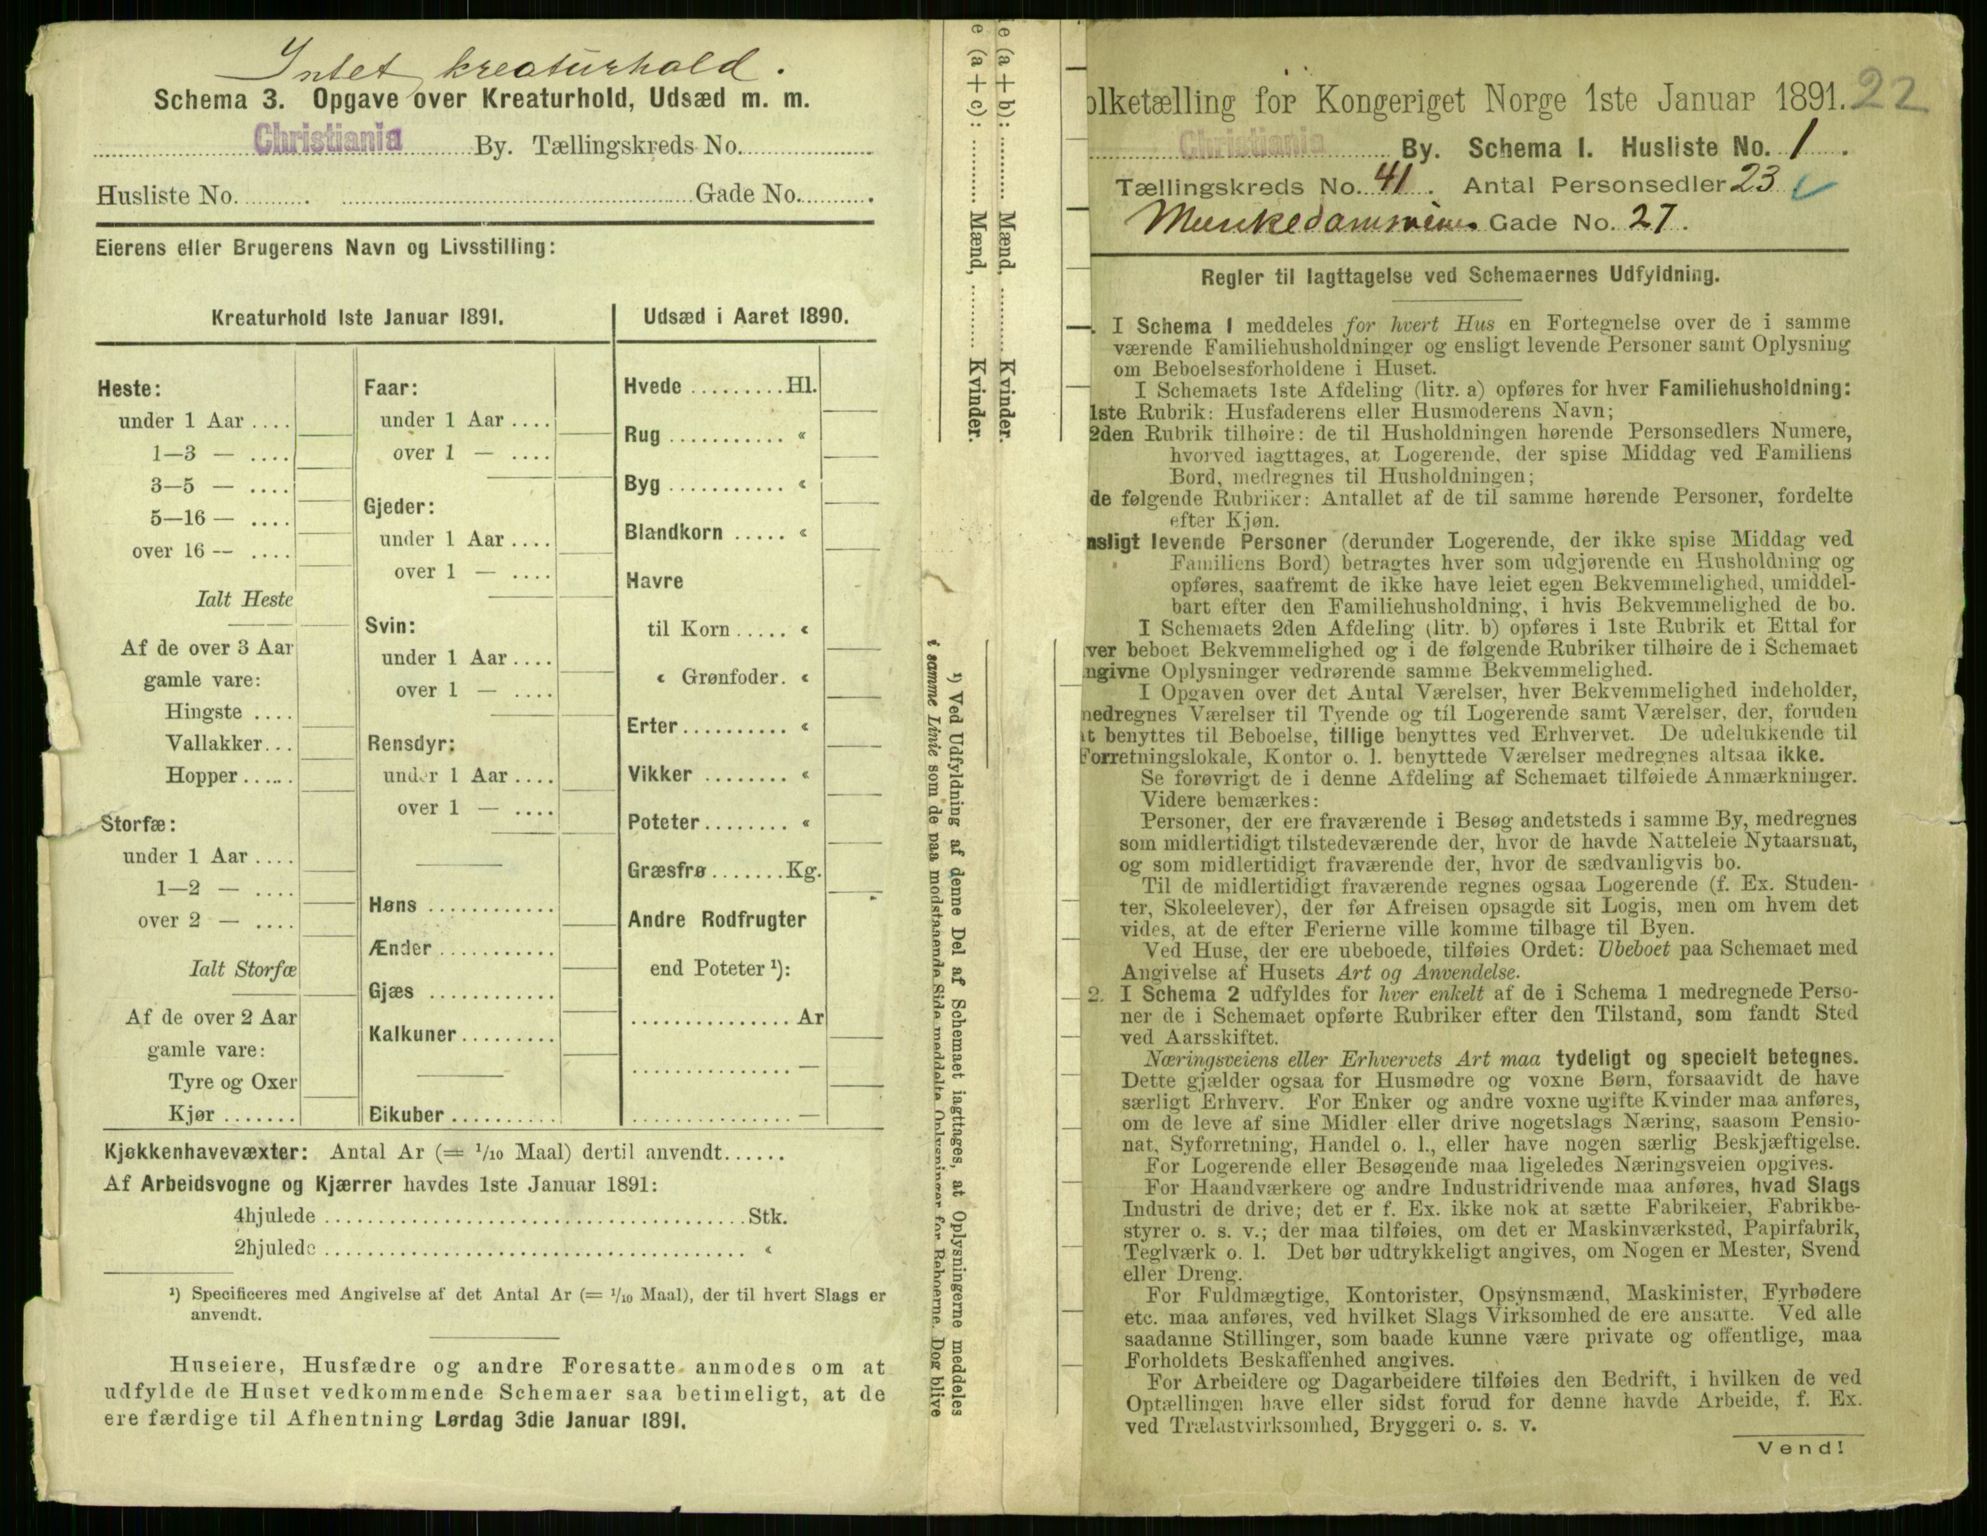 Intet kreaturhold.
Schema 3. Opgave over Kreaturhold, Udsæd m. m.
Christiania By. Tællingskreds No.
Husliste No. Gade No.
Eierens eller Brugerens Navn og Livsstilling:
Kreaturhold 1ste Januar 1891.
Heste:
under 1 Aar ....
1—3 — ....
3—5 — ....
5—16 — ....
over 16 — ....
Ialt Heste
Af de over 3 Aar
gamle vare:
Hingste ....
Vallakker...
Hopper ......
Storfæ:
under 1 Aar ....
1—2 — ....
over 2 — ....
Ialt Storfæ
Af de over 2 Aar
gamle vare:
Tyre og Oxer
Kjør .......
Faar:
under 1 Aar ....
over 1 — ....
Gjeder:
under 1 Aar ....
over 1 — ....
Svin:
under 1 Aar ....
over 1 — ....
Rensdyr:
under 1 Aar ....
over 1 — ....
Høns ............
Ænder ...........
Gjæs ............
Kalkuner.........
Eikuber ..........
Udsæd i Aaret 1890.
Hvede .........Hl.
Rug ........... «
Byg ........... «
Blandkorn ..... «
Havre
til Korn ..... «
« Grønfoder. «
Erter .......... «
Vikker ........ «
Poteter ........ «
Græsfrø .......Kg.
Andre Rodfrugter
end Poteter ¹):
............... Ar
............... —
............... —
Kjøkkenhavevæxter: Antal Ar (= 1/10 Maal) dertil anvendt......
Af Arbeidsvogne og Kjærrer havdes 1ste Januar 1891:
4hjulede ........................................ Stk.
2hjulede ........................................ «
¹) Specificeres med Angivelse af det Antal Ar (= 1/10 Maal), der til hvert Slags er
anvendt.
Huseiere, Husfædre og andre Foresatte anmodes om at
udfylde de Huset vedkommende Schemaer saa betimeligt, at de
ere færdige til Afhentning Lørdag 3die Januar 1891.
e (a + b): ........... Mænd, ......... Kvinder.
e (a + c): ........... Mænd, ......... Kvinder.
¹) Ved Udfyldning af denne Del af Schemaet iagttages, at Oplysningerne meddeles
i samme Linie som de paa modstaaende Side meddelte Oplysninger for Beboerne. Dog blive
olketælling for Kongeriget Norge 1ste Januar 1891. 22
Christiania By. Schema 1. Husliste No. 1.
Tællingskreds No. 41. Antal Personsedler 23
Munkedamsveien Gade No. 27.
Regler til Iagttagelse ved Schemaernes Udfyldning.
. I Schema 1 meddeles for hvert Hus en Fortegnelse over de i samme
værende Familiehusholdninger og ensligt levende Personer samt Oplysning
om Beboelsesforholdene i Huset.
I Schemaets 1ste Afdeling (litr. a) opføres for hver Familiehusholdning:
1ste Rubrik: Husfaderens eller Husmoderens Navn;
2den Rubrik tilhøire: de til Husholdningen hørende Personsedlers Numere,
hvorved iagttages, at Logerende, der spise Middag ved Familiens
Bord, medregnes til Husholdningen;
de følgende Rubriker: Antallet af de til samme hørende Personer, fordelte
efter Kjøn.
nsligt levende Personer (derunder Logerende, der ikke spise Middag ved
Familiens Bord) betragtes hver som udgjørende en Husholdning og
opføres, saafremt de ikke have leiet egen Bekvemmelighed, umiddel-
bart efter den Familiehusholdning, i hvis Bekvemmelighed de bo.
I Schemaets 2den Afdeling (litr. b) opføres i 1ste Rubrik et Ettal for
ver beboet Bekvemmelighed og i de følgende Rubriker tilhøire de i Schemaet
ngivne Oplysninger vedrørende samme Bekvemmelighed.
I Opgaven over det Antal Værelser, hver Bekvemmelighed indeholder,
nedregnes Værelser til Tyende og til Logerende samt Værelser, der, foruden
t benyttes til Beboelse, tillige benyttes ved Erhvervet. De udelukkende til
Forretningslokale, Kontor o. l. benyttede Værelser medregnes altsaa ikke.
Se forøvrigt de i denne Afdeling af Schemaet tilføiede Anmærkninger.
Videre bemærkes:
Personer, der ere fraværende i Besøg andetsteds i samme By, medregnes
som midlertidigt tilstedeværende der, hvor de havde Natteleie Nytaarsnat,
og som midlertidigt fraværende der, hvor de sædvanligvis bo.
Til de midlertidigt fraværende regnes ogsaa Logerende (f. Ex. Studen-
ter, Skoleelever), der før Afreisen opsagde sit Logis, men om hvem det
vides, at de efter Ferierne ville komme tilbage til Byen.
Ved Huse, der ere ubeboede, tilføies Ordet: Ubeboet paa Schemaet med
Angivelse af Husets Art og Anvendelse.
2. I Schema 2 udfyldes for hver enkelt af de i Schema 1 medregnede Perso-
ner de i Schemaet opførte Rubriker efter den Tilstand, som fandt Sted
ved Aarsskiftet.
Næringsveiens eller Erhvervets Art maa tydeligt og specielt betegnes.
Dette gjælder ogsaa for Husmødre og voxne Børn, forsaavidt de have
særligt Erhverv. For Enker og andre voxne ugifte Kvinder maa anføres,
om de leve af sine Midler eller drive nogetslags Næring, saasom Pensio-
nat, Syforretning, Handel o. l., eller have nogen særlig Beskjæftigelse.
For Logerende eller Besøgende maa ligeledes Næringsveien opgives.
For Haandværkere og andre Industridrivende maa anføres, hvad Slags
Industri de drive; det er f. Ex. ikke nok at sætte Fabrikeier, Fabrikbe-
styrer o. s. v.; der maa tilføies, om det er Maskinværksted, Papirfabrik,
Teglværk o. l. Det bør udtrykkeligt angives, om Nogen er Mester, Svend
eller Dreng.
For Fuldmægtige, Kontorister, Opsynsmænd, Maskinister, Fyrbødere
etc. maa anføres, ved hvilket Slags Virksomhed de ere ansatte. Ved alle
saadanne Stillinger, som baade kunne være private og offentlige, maa
Forholdets Beskaffenhed angives.
For Arbeidere og Dagarbeidere tilføies den Bedrift, i hvilken de ved
Optællingen have eller sidst forud for denne havde Arbeide, f. Ex.
ved Trælastvirksomhed, Bryggeri o. s. v.
Vend!